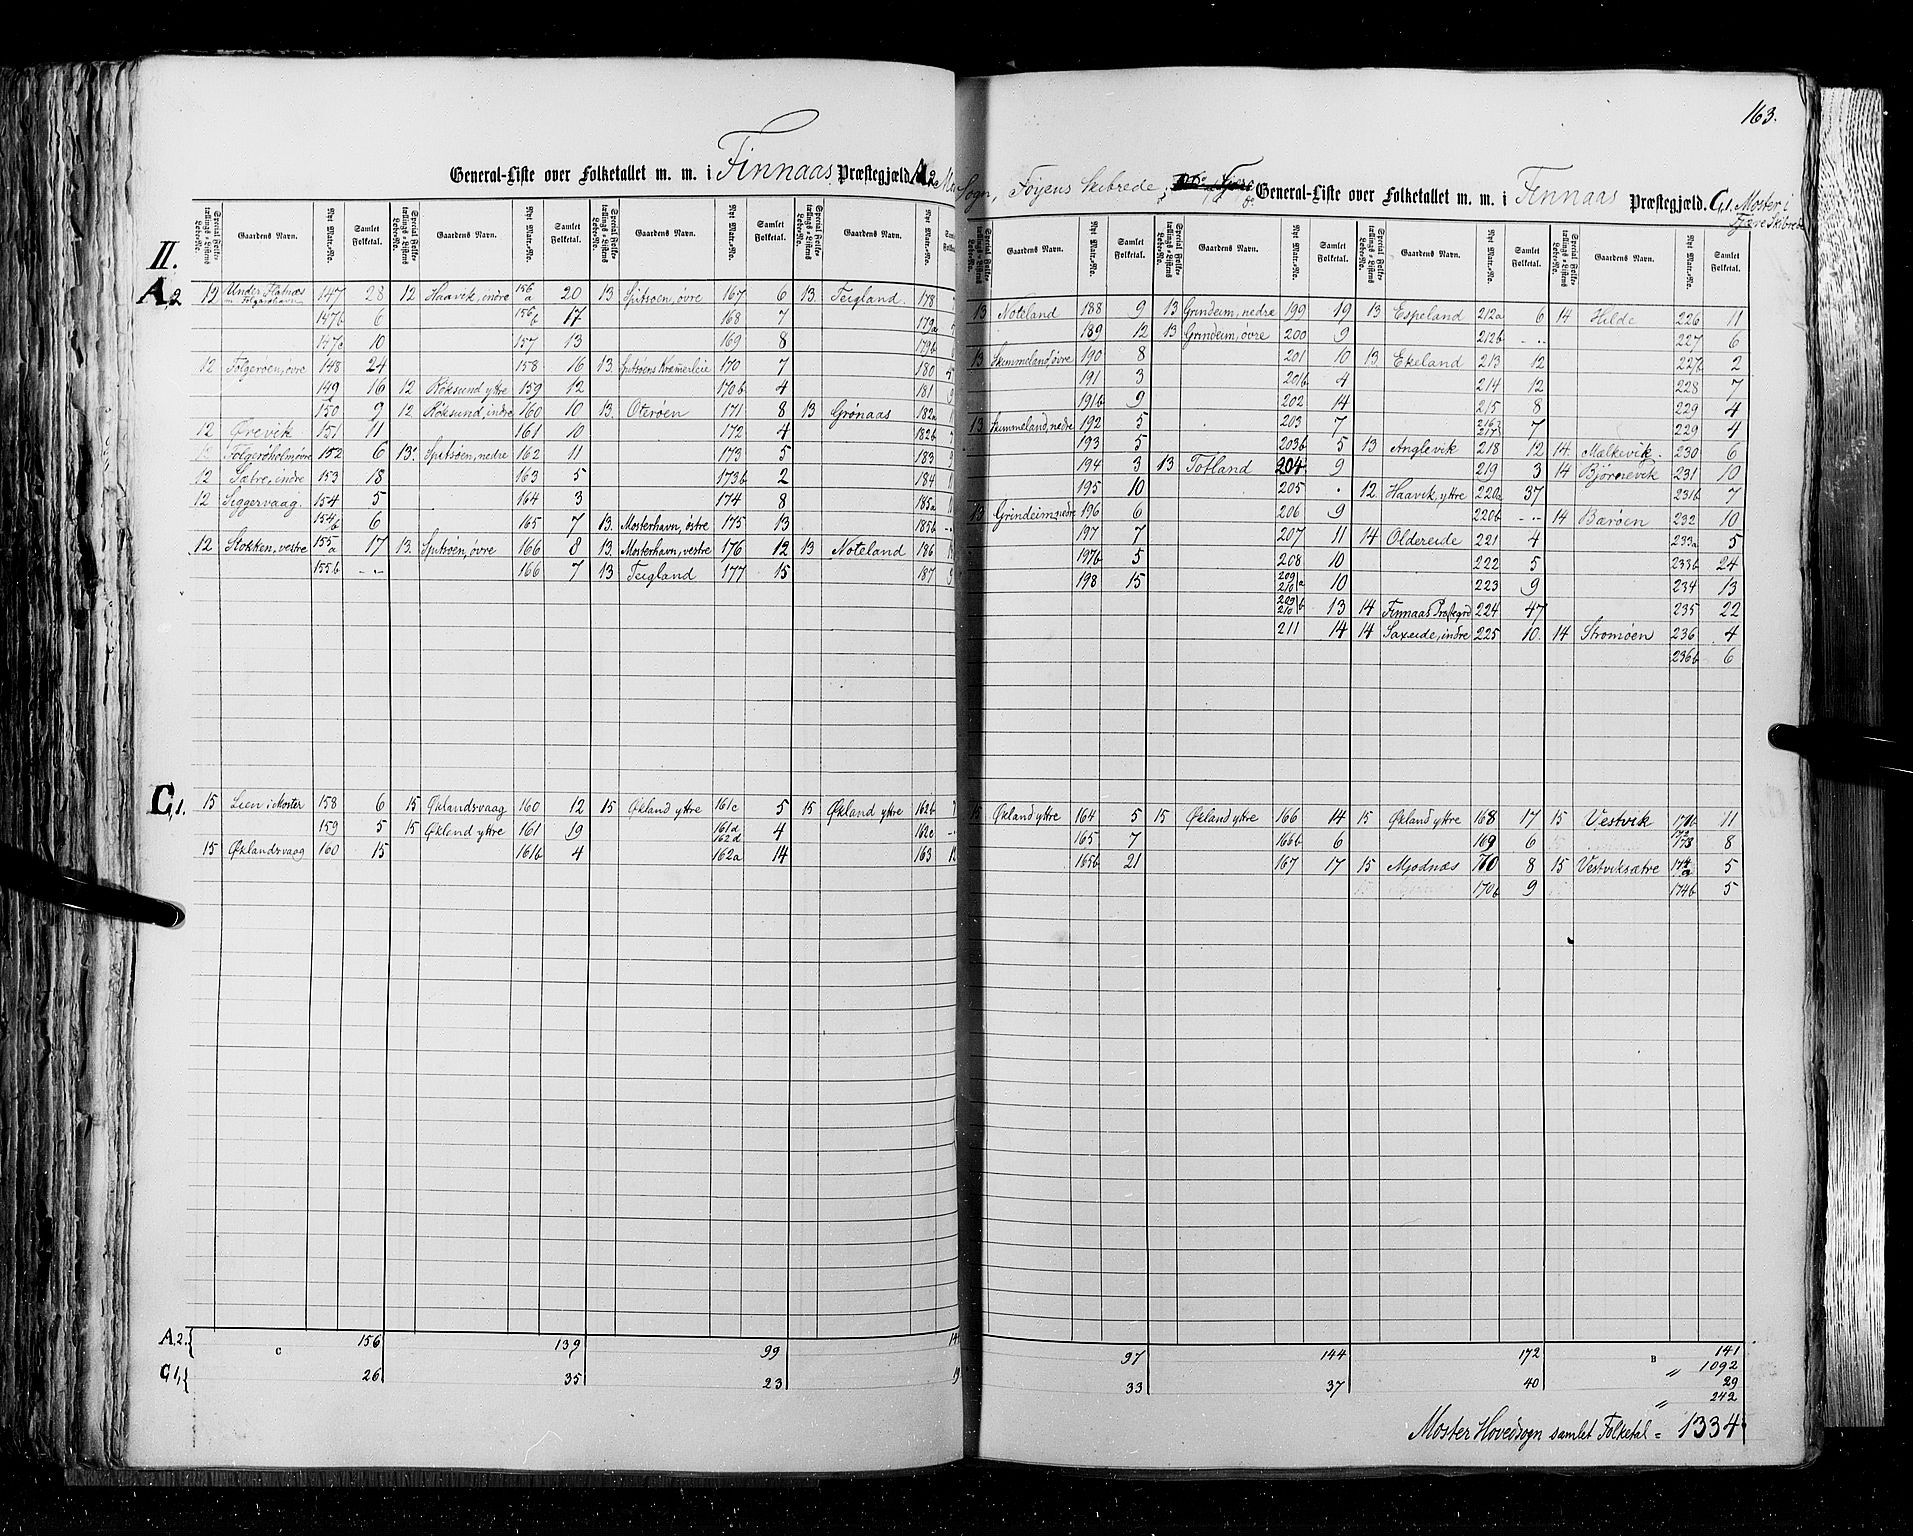 163.
General-Liste over Folketallet m. m. i Finnaas Præstegjæld. A.2.
Sogn, Föyens Skibrede; General-Liste over Folketallet m. m. i Finnaas Præstegjæld. C,1. Moster i
Fjære Skibrede
Special Folketællings-Listens Løbe-No. Gaardens Navn. Nyt Matr.-No. Samlet Folketal. Special Folketællings-Listens Løbe-No. Gaardens Navn. Nyt Matr.-No. Samlet Folketal. Special Folketællings-Listens Løbe-No. Gaardens Navn. Nyt Matr.-No. Samlet Folketal. Special Folketællings-Listens Løbe-No. Gaardens Navn. Nyt Matr.-No.
II.
A,2
12 Under Flatnæs 147 28 12 Haavik, indre 156a 20 13 Spitsøen, øvre 167 6 13. Teigland. 178
m Folgerøhavn
147b 6 156b 17 168 7 179a
147c 10 157 13 169 8 179b
12 Folgerøen, øvre 148 24 158 16 13. Spitsøens Kræmerleie 170 7 180
149 16 12 Röksund yttre 159 12 170b 4 181
150 9 12 Röksund, indre 160 10 13. Oterøen 171 8 13 Grønaas 182a
12 Ørevik 151 11 161 10 172 4 182b
12 Folgerøholm øvre 152 6 13. Spitsøen, nedre 162 11 173 5 183
12 Sætre, indre 153 18 163 5 173b 2 184
12 Siggervaag. 154 5 164 3 174 8 185a
154b 6 165 7 13. Mosterhavn, östre 175 13 185b
12 Stokken, vestre 155a 17 13. Spitsøen, øvre 166 8 13. Mosterhavn, vestre 176 12 13 Noteland 186
155b -- 166 7 13 Teigland 177 15 187
C,1.
15 Lien i Moster 158 6 15 Øklandsvaag 160 12 15 Økland yttre 161c 5 15 Økland yttre 162b
159 5 15 Økland yttre 161 19 161d 162d 4 162c
15 Øklandsvaag 160 15 161b 4 162a 14 163
A.2. 156 139 99
C
C 1, 26 35 23
Special Folketællings-Listens Løbe-No. Gaardens Navn. Nyt Matr.-No. Samlet Folketal. Special Folketællings-Listens Løbe-No. Gaardens Navn. Nyt Matr.-No. Samlet Folketal. Special Folketællings-Listens Løbe-No. Gaardens Navn. Nyt Matr.-No. Samlet Folketal. Special Folketællings-Listens Løbe-No. Gaardens Navn. Nyt Matr.-No. Samlet Folketal.
13 Noteland 188 9 13 Grindeim, nedre 199 19 13 Espeland 212a 6 14 Hilde 226 11
189 12 13 Grindeim, øvre 200 9 212b -- 227 6
13 Skimmeland, øvre 190 8 201 10 13 Ekeland 213 12 227b 2
191 3 201b 4 214 12 228 7
191b 9 202 14 215 8 229 4
13 Skimmeland, nedre 192 5 203 7 216 217 7 229 4
193 5 203b 5 13 Anglevik 218 12 14. Mælkevik. 230 6
194 3 13 Totland 204 9 219 3 14 Bjørnevik 231 10
195 10 205 . 12 Haavik, yttre 220a 37 231b 7
13 Grindeim, nedre 196 6 206 9 220b -- 14 Barøen 232 10
197 7 207 11 14 Oldereide 221 4 233a 5
197b 5 208 10 222 5 233b 24
198 15 209 210 a 10 223 9 234 13
209 210 b 13 14 Finnaas Præstegrd 224 47 235 22
211 14 14 Saxeide, indre 225 10. 14 Stromøen 236 4
236b 6
15 Økland yttre 164 5 15 Økland yttre 166 14 15 Økland yttre 168 17 15 Vestvik 171b 11
165 7 166b 6 169 6 172 173 8
165b 21 167 17 15 Mjødnæs 170 8 15 Vestviksætre 174a 5
170b 9 174b 5
97 144 172 141
B " 1092
33 37 40 29
" 242
Moster Hovedsogn samlet Folketal = 1334